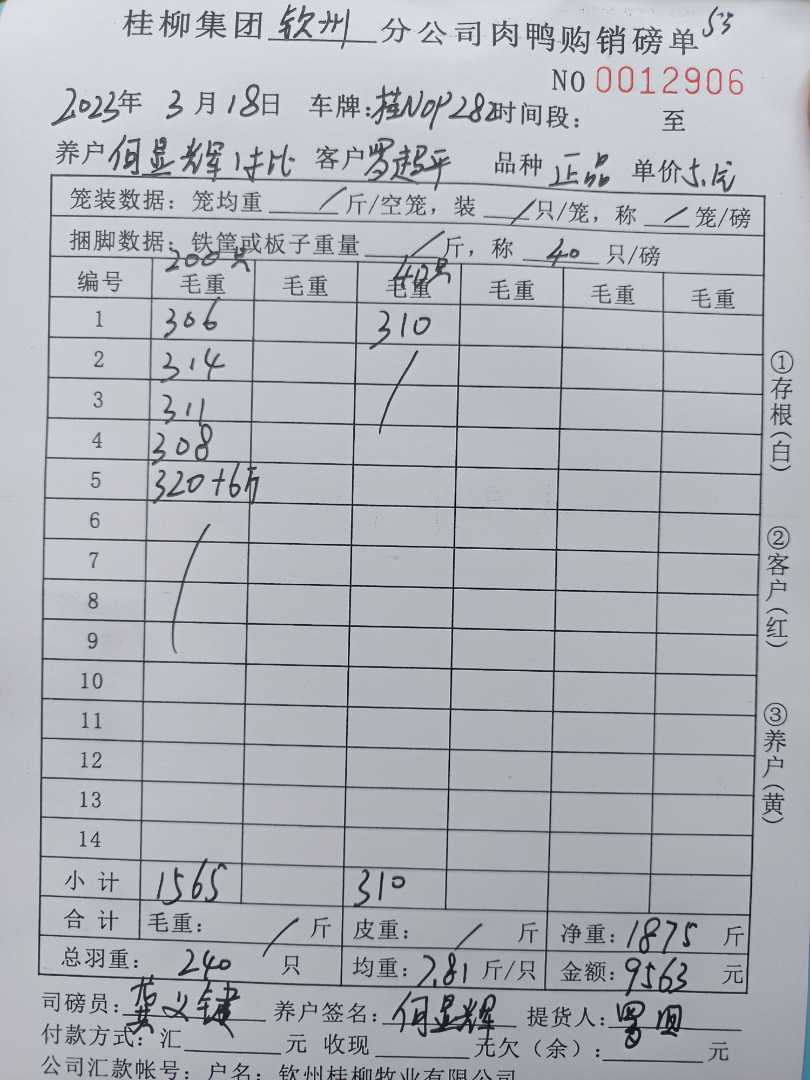 桂柳集团钦州分公司肉鸭购销磅单 53
NO 0012906
2023年 3月18日 车牌:桂N0P282 时间段: 至
养户 何显辉 客户 罗超平 品种 正品 单价 5.1元
笼装数据: 笼均重 / 斤/空笼, 装 / 只/笼, 称 / 笼/磅
捆脚数据: 铁筐或板子重量 / 斤, 称 40 只/磅
200只 40只
编号 毛重 毛重 毛重 毛重 毛重 毛重
1 306 310
2 314 /
3 311
4 308
5 320+6斤
6 /
7
8
9
10
11
12
13
14
小计 1565 310
合计 毛重: / 斤 皮重: / 斤 净重: 1875 斤
总羽重: 240 只 均重: 7.81 斤/只 金额: 9563 元
司磅员: 黄义键 养户签名: 何显辉 提货人: 罗
付款方式: 汇 元 收现 元欠(余): 元
公司汇款帐号: 户名: 钦州桂柳牧业有限公司
①存根(白)
②客户(红)
③养户(黄)